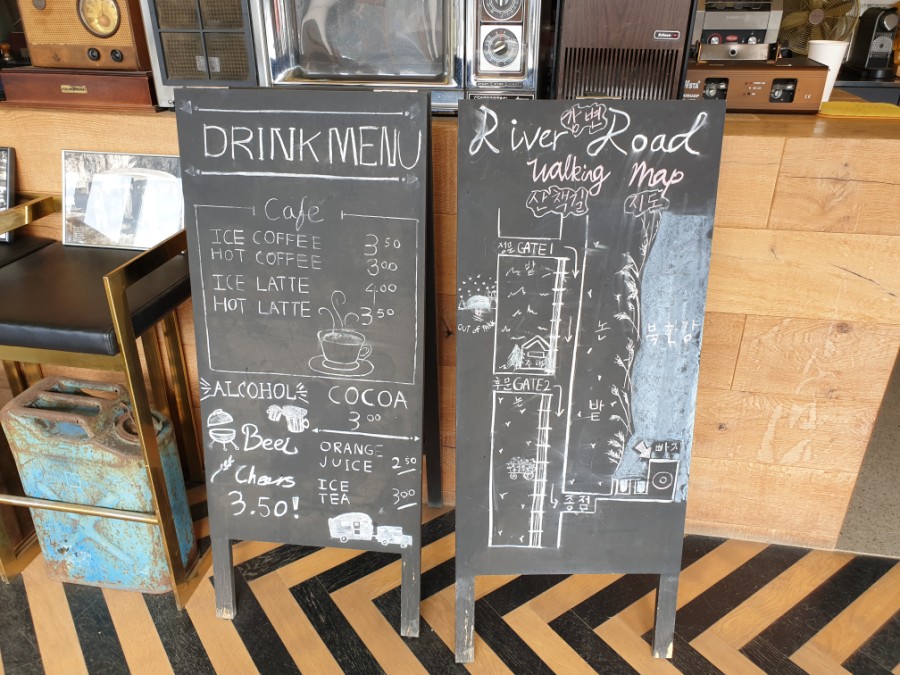 DRINK MENU
Cafe
ICE COFFEE 3.50
HOT COFFEE 3.00
ICE LATTE 4.00
HOT LATTE 3.50
ALCOHOL
Beer
Cheers
3.50!
COCOA
3.00
ORANGE
JUICE 2.50
ICE
TEA 3.00
River 강변 Road
Walking Map
산책길 지도
정문 GATE1
밭
OUT OF PARK
논
북한강
후문 GATE2
논
밭
빠지
종점